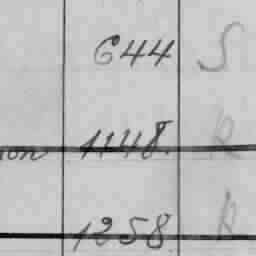 644 S
on 1148. R
1258 R